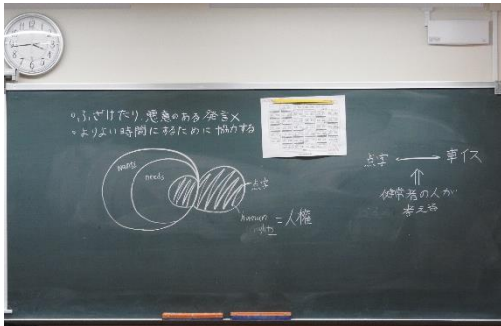 ○ふざけたり、悪意のある発言×
○よりよい時間にするために協力する
wants
needs
点字
human
rights
=人権
点字 ⟷ 車イス
⇑
健常者の人が
考える